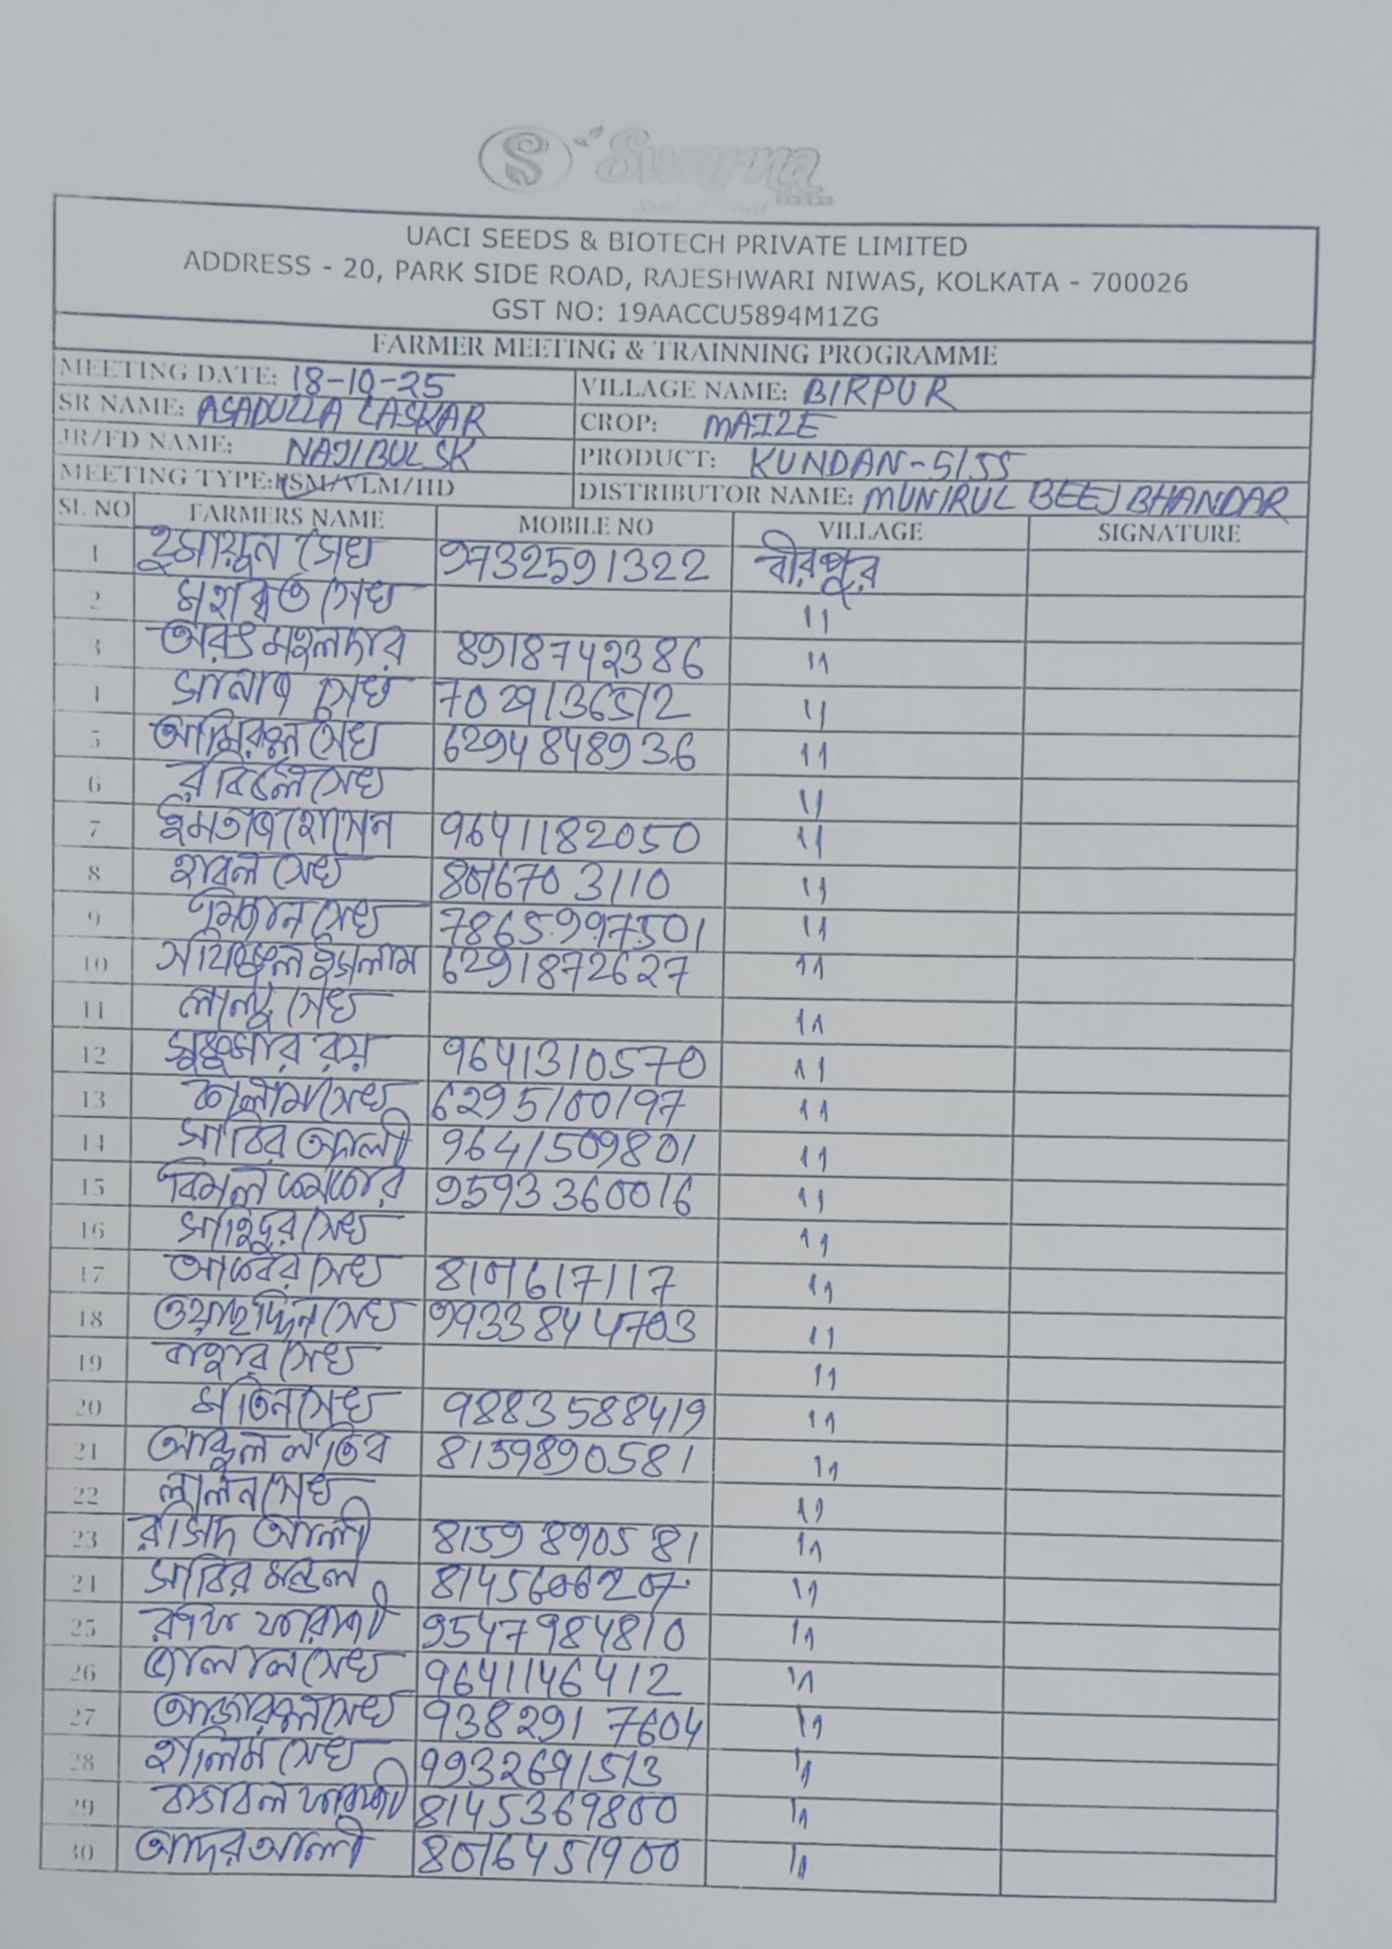 S Swarna
UACI SEEDS & BIOTECH PRIVATE LIMITED
ADDRESS - 20, PARK SIDE ROAD, RAJESHWARI NIWAS, KOLKATA - 700026
GST NO: 19AACCU5894M1ZG
FARMER MEETING & TRAINNING PROGRAMME
MEETING DATE: 18-10-25 VILLAGE NAME: BIRPUR
SR NAME: ASADULLA LASKAR CROP: MAIZE
JR/FD NAME: NAJIBUL SK PRODUCT: KUNDAN-5155
MEETING TYPE: FSM/VLM/HD DISTRIBUTOR NAME: MUNIRUL BEEJ BHANDAR
SL NO FARMERS NAME MOBILE NO VILLAGE SIGNATURE
1 হুসায়ুন সেখ 9732591322 বীরপুর
2 সেখ 11
3 8918742386 11
4 সেখ 7029136512 11
5 আমিরুল সেখ 6294848936 11
6 সেখ 11
7 ইমতাজ হোসেন 9641182050 11
8 হাবল সেখ 8016703110 11
9 মিজান সেখ 7865997501 11
10 সফিকুল ইসলাম 6291872627 11
11 লাল্টু সেখ 11
12 সুকুমার রয় 9641310570 11
13 কালাম সেখ 6295100197 11
14 সাবির আলী 9641509801 11
15 বিমল 9593360016 11
16 সাহিদুর সেখ 11
17 সেখ 8101617117 11
18 সেখ 9933844703 11
19 সেখ 11
20 মতিন সেখ 9883588419 11
21 আব্দুল লতিব 8159890581 11
22 লালন সেখ 11
23 রসিদ আলী 8159890581 11
24 সাবির মন্ডল 8145606207 11
25 9547984810 11
26 জালাল সেখ 9641146412 11
27 আজারুল সেখ 9382917604 11
28 হালিম সেখ 9932691513 11
29 8145369800 11
30 আদর আলী 8016451900 11